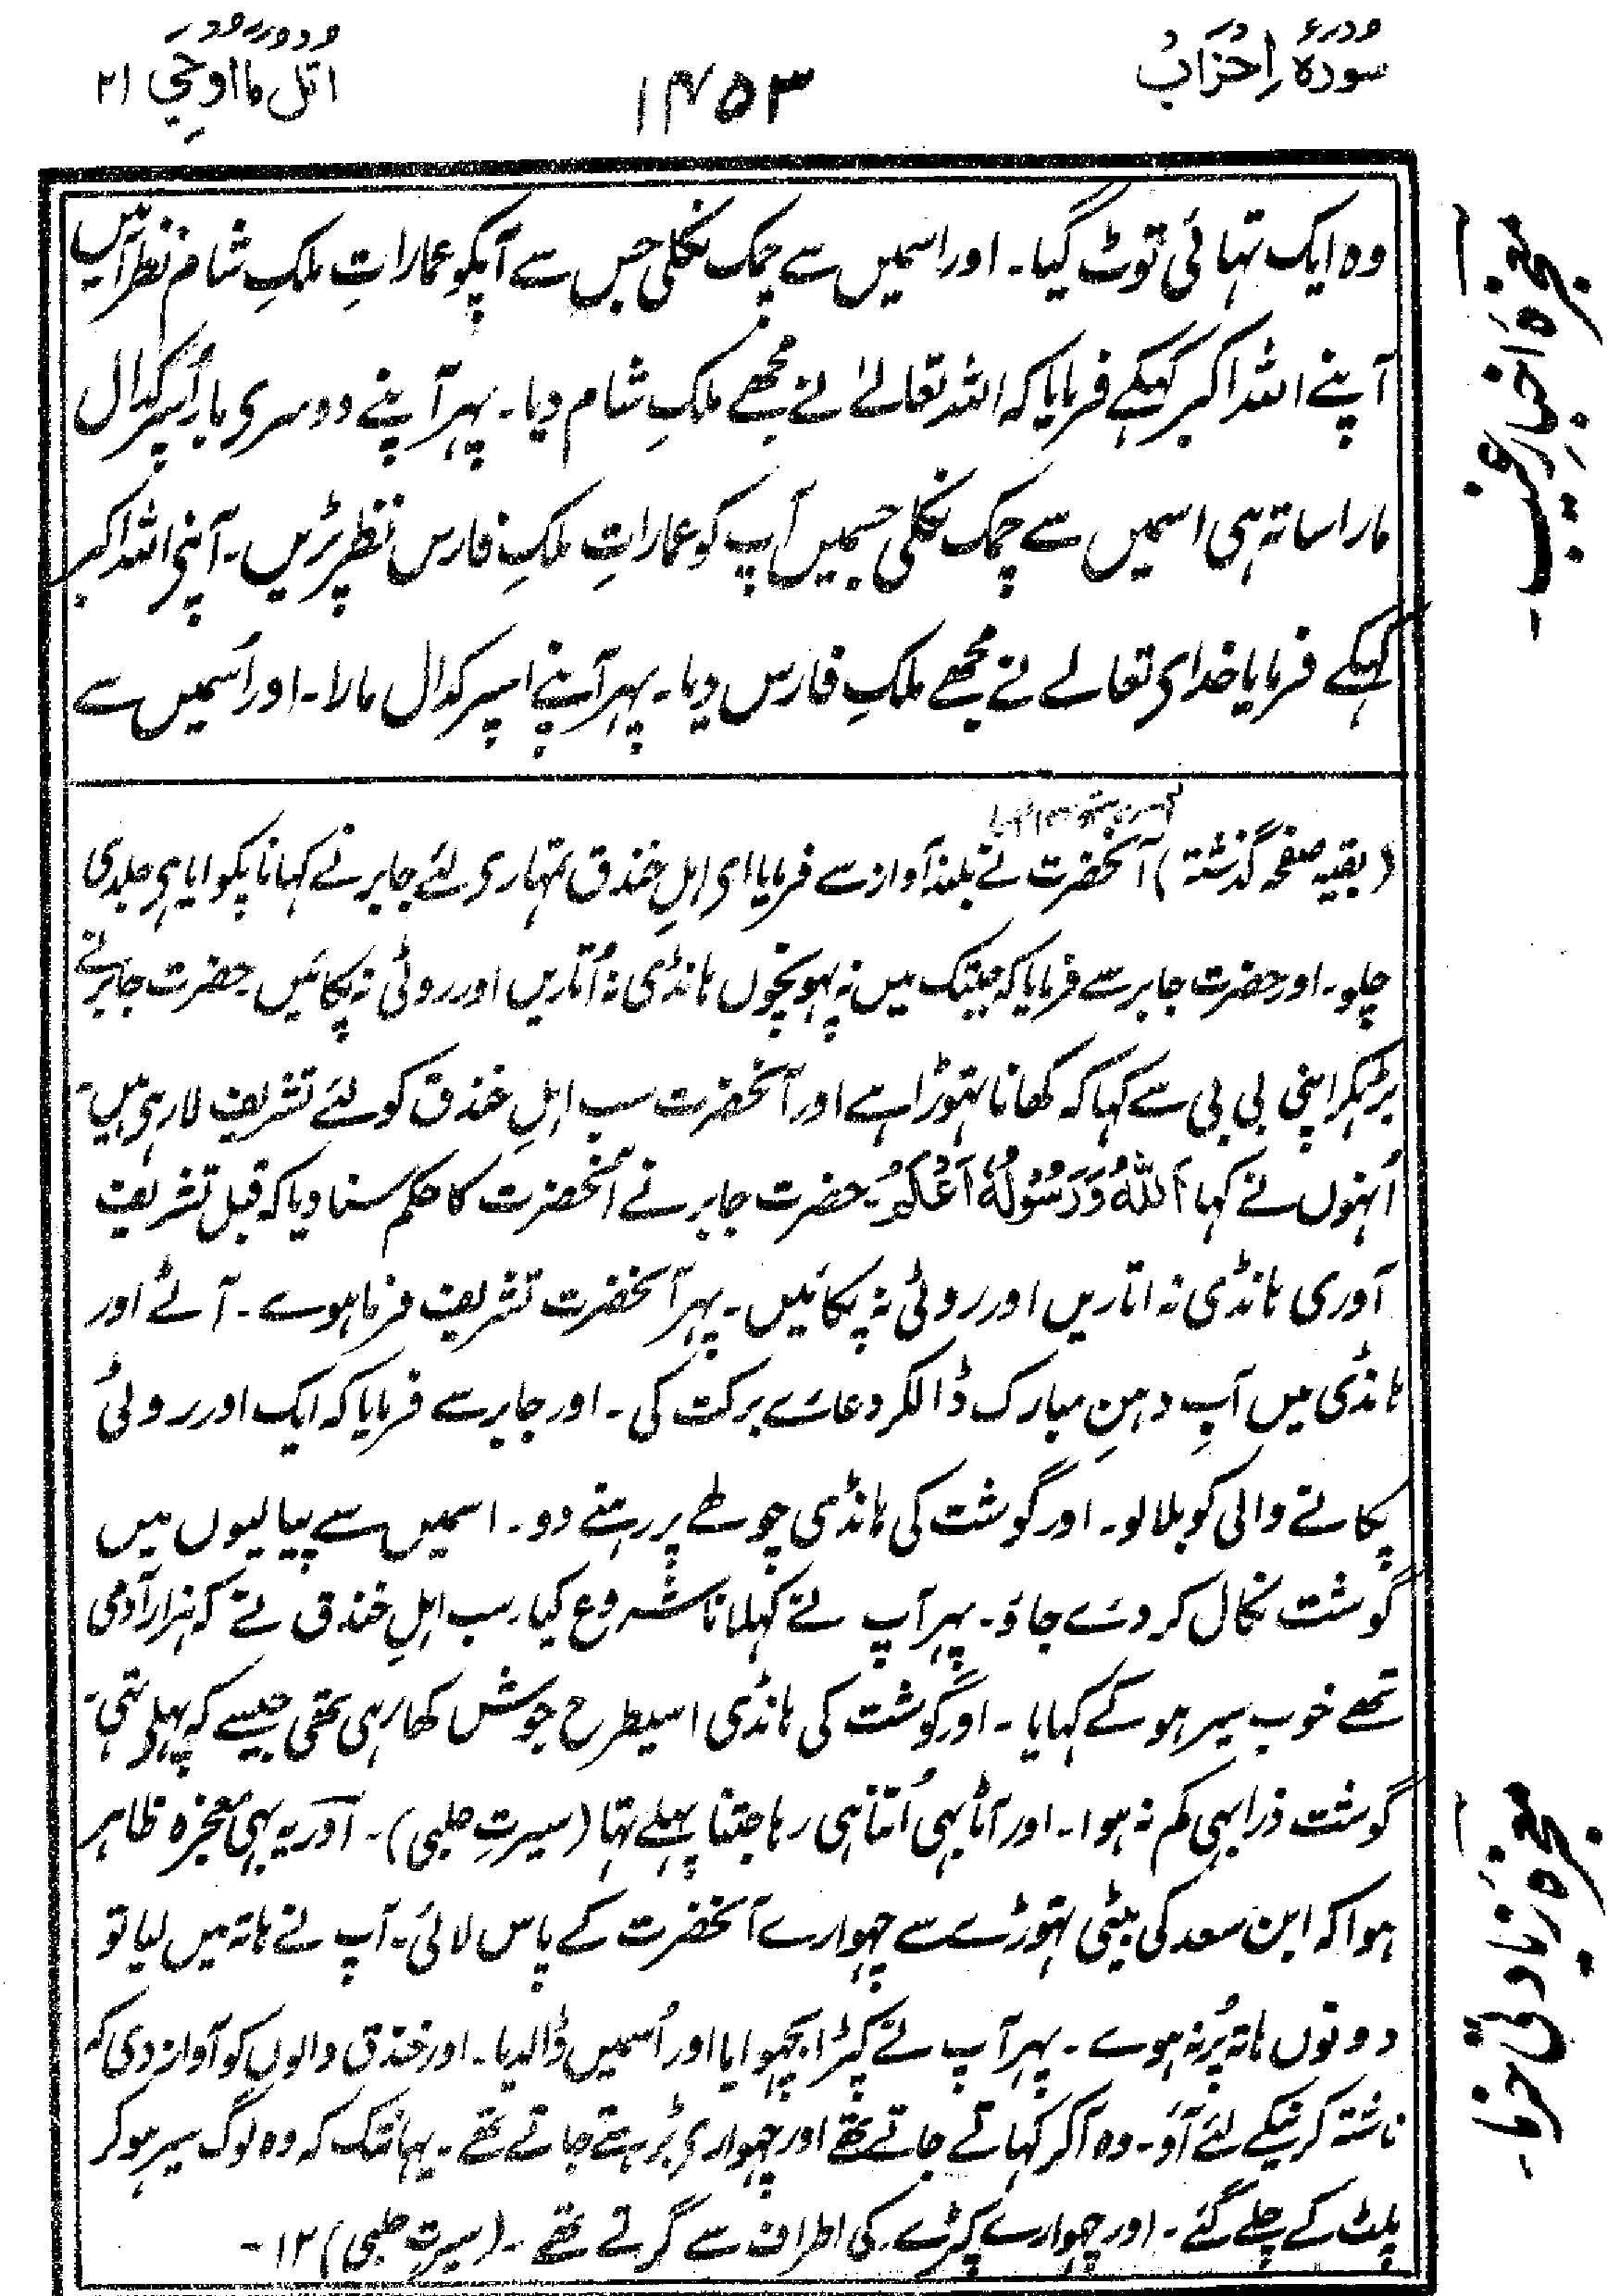 سورۂ احزاب
۱۴۵۳
اتل ما اوحی ۲۱
وہ ایک تہائی ٹوٹ گیا۔ اور اسمیں سے چمک نکلی جس سے آپکو عماراتِ ملکِ شام نظر آئیں
آپنے اللہ اکبر کہکے فرمایا کہ اللہ تعالےٰ نے مجھے ملکِ شام دیا۔ پہر آپنے دوسری بار اُسپر کدال
مارا ساتہ ہی اسمیں سے چمک نکلی جسمیں آپ کو عماراتِ ملکِ فارس نظر پڑیں۔ آپنی اللہ اکبر
کہکے فرمایا خدای تعالے نے مجھے ملکِ فارس دیا۔ پہر آپنے اسپر کدال مارا۔ اور اُسمیں سے
(بقیہ صفحہ گذشتہ) آنحضرت نے بلند آواز سے فرمایا ای اہلِ خندق تمہاری لئے جابر نے کہانا پکوایا ہی جلدی
چلو۔ اور حضرت جابر سے فرمایا کہ جبتک میں نہ پہونچوں ہانڈی نہ اُتاریں اور روٹی نہ پکائیں۔ حضرت جابر نے
بڑہکر اپنی بی بی سے کہا کہ کھانا تہوڑا ہے اور آنحضرت سب اہلِ خندق کو لئے تشریف لا رہی ہیں۔
اُنہوں نے کہا اَللّٰهُ وَرَسُوْلُهٗ اَعْلَمُ۔ حضرت جابر نے آنحضرت کا حکم سنا دیا کہ قبل تشریف
آوری ہانڈی نہ اتاریں اور روٹی نہ پکائیں۔ پہر آنحضرت تشریف فرما ہوے۔ آٹے اور
ہانڈی میں آبِ دہنِ مبارک ڈالکر دعائے برکت کی۔ اور جابر سے فرمایا کہ ایک اور روٹی
پکانے والی کو بلا لو۔ اور گوشت کی ہانڈی چولھے پر رہنے دو۔ اسمیں سے پیالیوں میں
گوشت نکال کر دئے جاؤ۔ پہر آپ نے کہلانا شروع کیا۔ سب اہلِ خندق نے کہ ہزار آدمی
تھے خوب سیر ہو کے کہایا۔ اور گوشت کی ہانڈی اسیطرح جوش کھا رہی تھی جیسے کہ پہلی تہی۔
گوشت ذرا بہی کم نہ ہوا۔ اور آٹا بہی اُتنا ہی رہا جتنا پہلے تہا (سیرتِ حلبی)۔ اور یہ بہی معجزہ ظاہر
ہوا کہ ابن سعد کی بیٹی تہوڑے سے چہوارے آنحضرت کے پاس لائی۔ آپ نے ہاتہ میں لیا تو
دونوں ہاتہ پُر نہ ہوے۔ پہر آپ نے کپڑا بچہوایا اور اُسمیں ڈالدیا۔ اور خندق والوں کو آواز دی کہ
ناشتہ کرنیکے لئے آؤ۔ وہ آکر کہاتے جاتے تھے اور چہواری بڑہتے جاتے تھے۔ یہانتک کہ وہ لوگ سیر ہو کر
پلٹ کے چلے گئے۔ اور چہوارے کپڑے کی اطراف سے گرتے تھے۔ (سیرتِ حلبی) ۱۲۔
معجزۂ اخبارِ غیب۔
معجزۂ زیادتی خرما۔